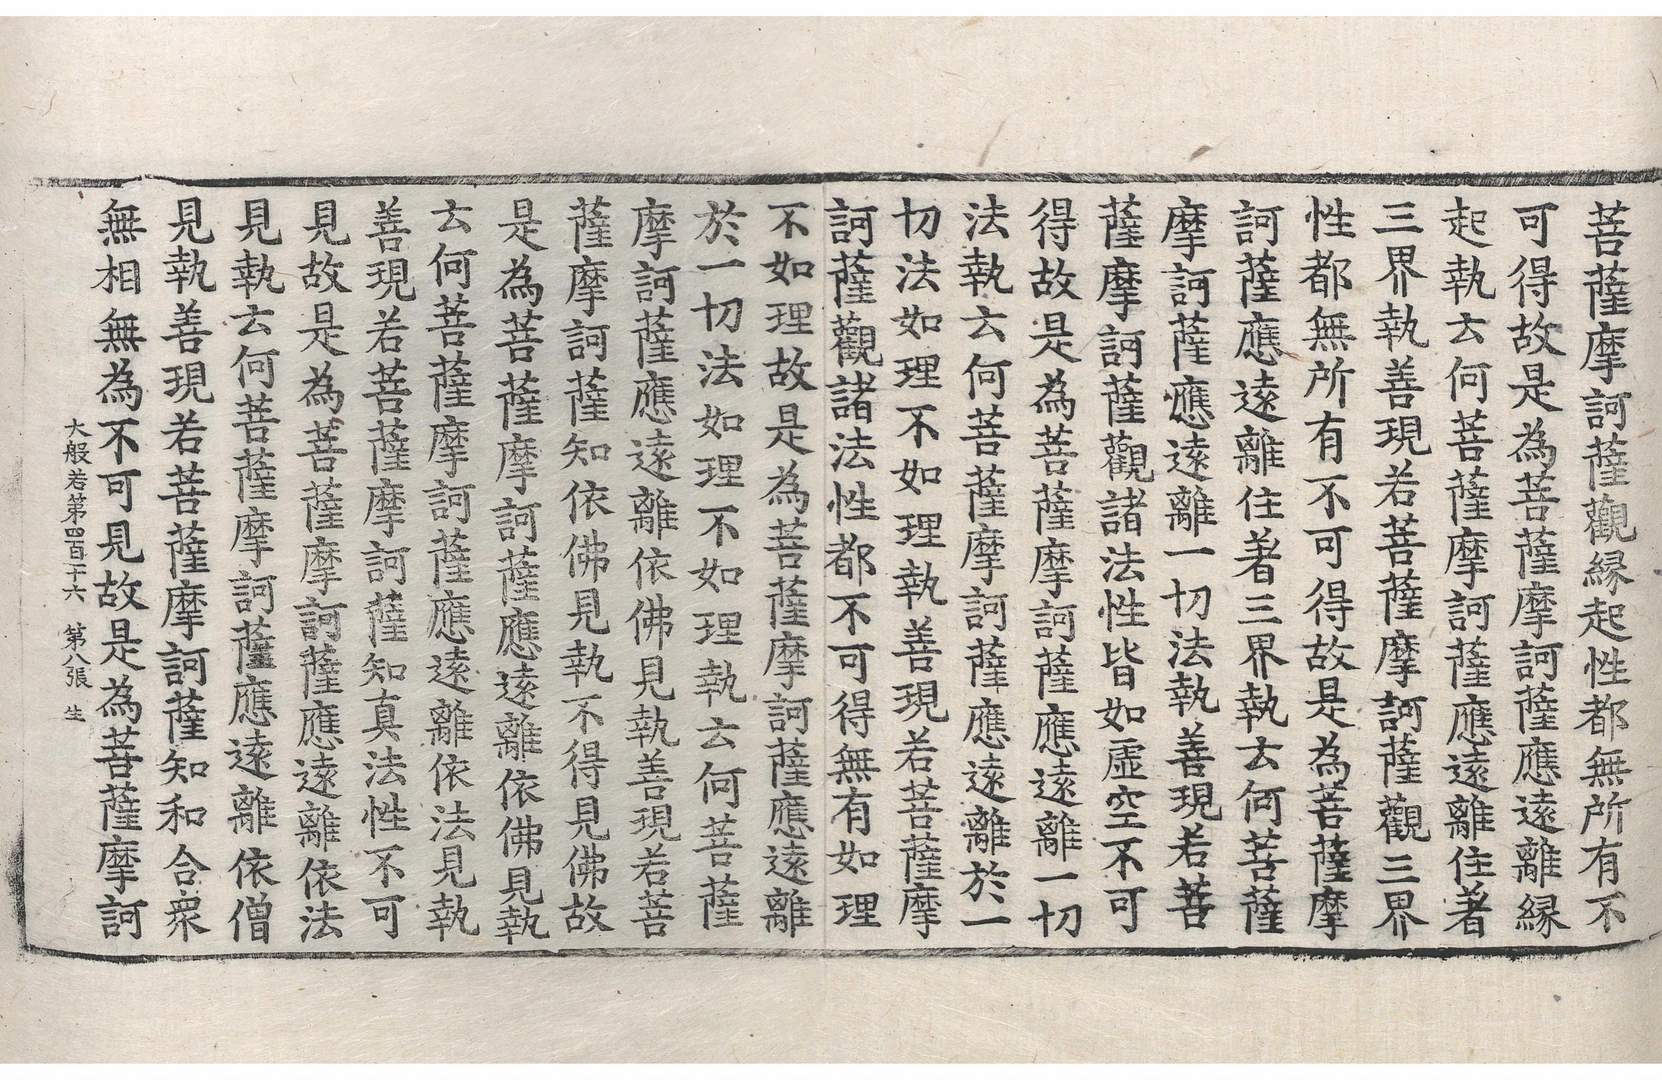 菩薩摩訶薩觀緣起性都無所有不
可得故是為菩薩摩訶薩應遠離緣
起執云何菩薩摩訶薩應遠離住著
三界執善現若菩薩摩訶薩觀三界
性都無所有不可得故是為菩薩摩
訶薩應遠離住著三界執云何菩薩
摩訶薩應遠離一切法執善現若菩
薩摩訶薩觀諸法性皆如虛空不可
得故是為菩薩摩訶薩應遠離一切
法執云何菩薩摩訶薩應遠離於一
切法如理不如理執善現若菩薩摩
訶薩觀諸法性都不可得無有如理
不如理故是為菩薩摩訶薩應遠離
於一切法如理不如理執云何菩薩
摩訶薩應遠離依佛見執善現若菩
薩摩訶薩知依佛見執不得見佛故
是為菩薩摩訶薩應遠離依佛見執
云何菩薩摩訶薩應遠離依法見執
善現若菩薩摩訶薩知真法性不可
見故是為菩薩摩訶薩應遠離依法
見執云何菩薩摩訶薩應遠離依僧
見執善現若菩薩摩訶薩知和合眾
無相無為不可見故是為菩薩摩訶
大般若第四百十六 第八張 生